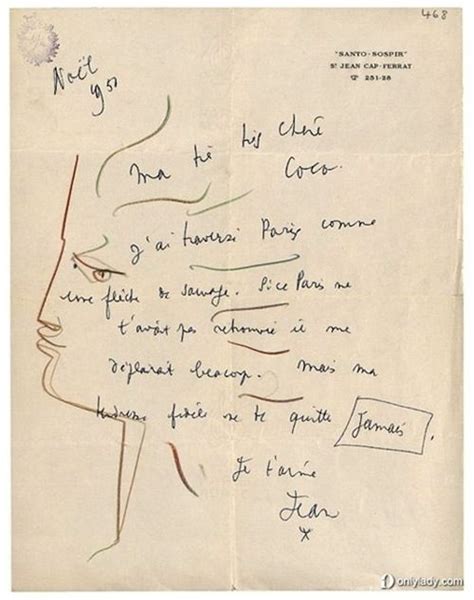 468
"SANTO-SOSPIR"
ST JEAN CAP-FERRAT
251-28
Noël
1950
Ma trè très chère
Coco.
J'ai traversé Paris comme
une flèche de sauvage. Si ce Paris ne
t'avait pas retrouvée il me
déplairait beaucoup. Mais ma
tendresse fidèle ne te quitte Jamais.
Je t'aime
Jean
onlylady.com